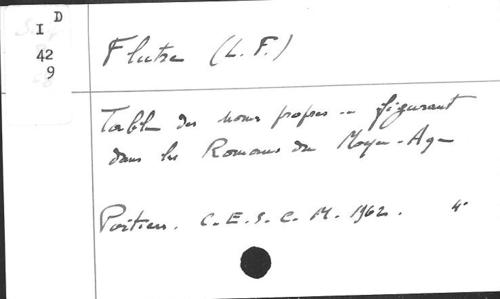 D
I
42
9
Flutre (L. F.)
Table des noms propres ... figurant
dans les Romans du Moyen-Age
Poitiers. C.E.S.C.M. 1962. 4°